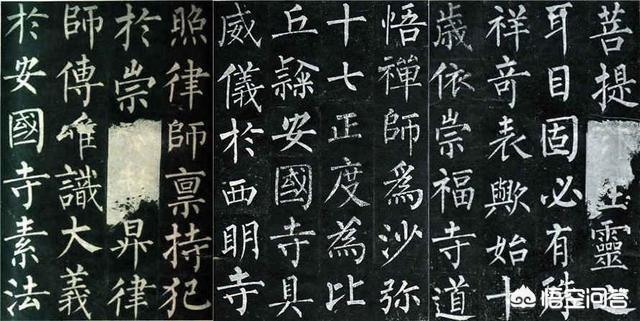 菩提靈之
耳目固必有殊
祥奇表歟始十
歲依崇福寺道
悟禪師爲沙弥
十七正度為比
丘隸安國寺具
威儀於西明寺
照律師禀持犯
於崇昇律
師傳唯識大義
於安國寺素法
悟空问答